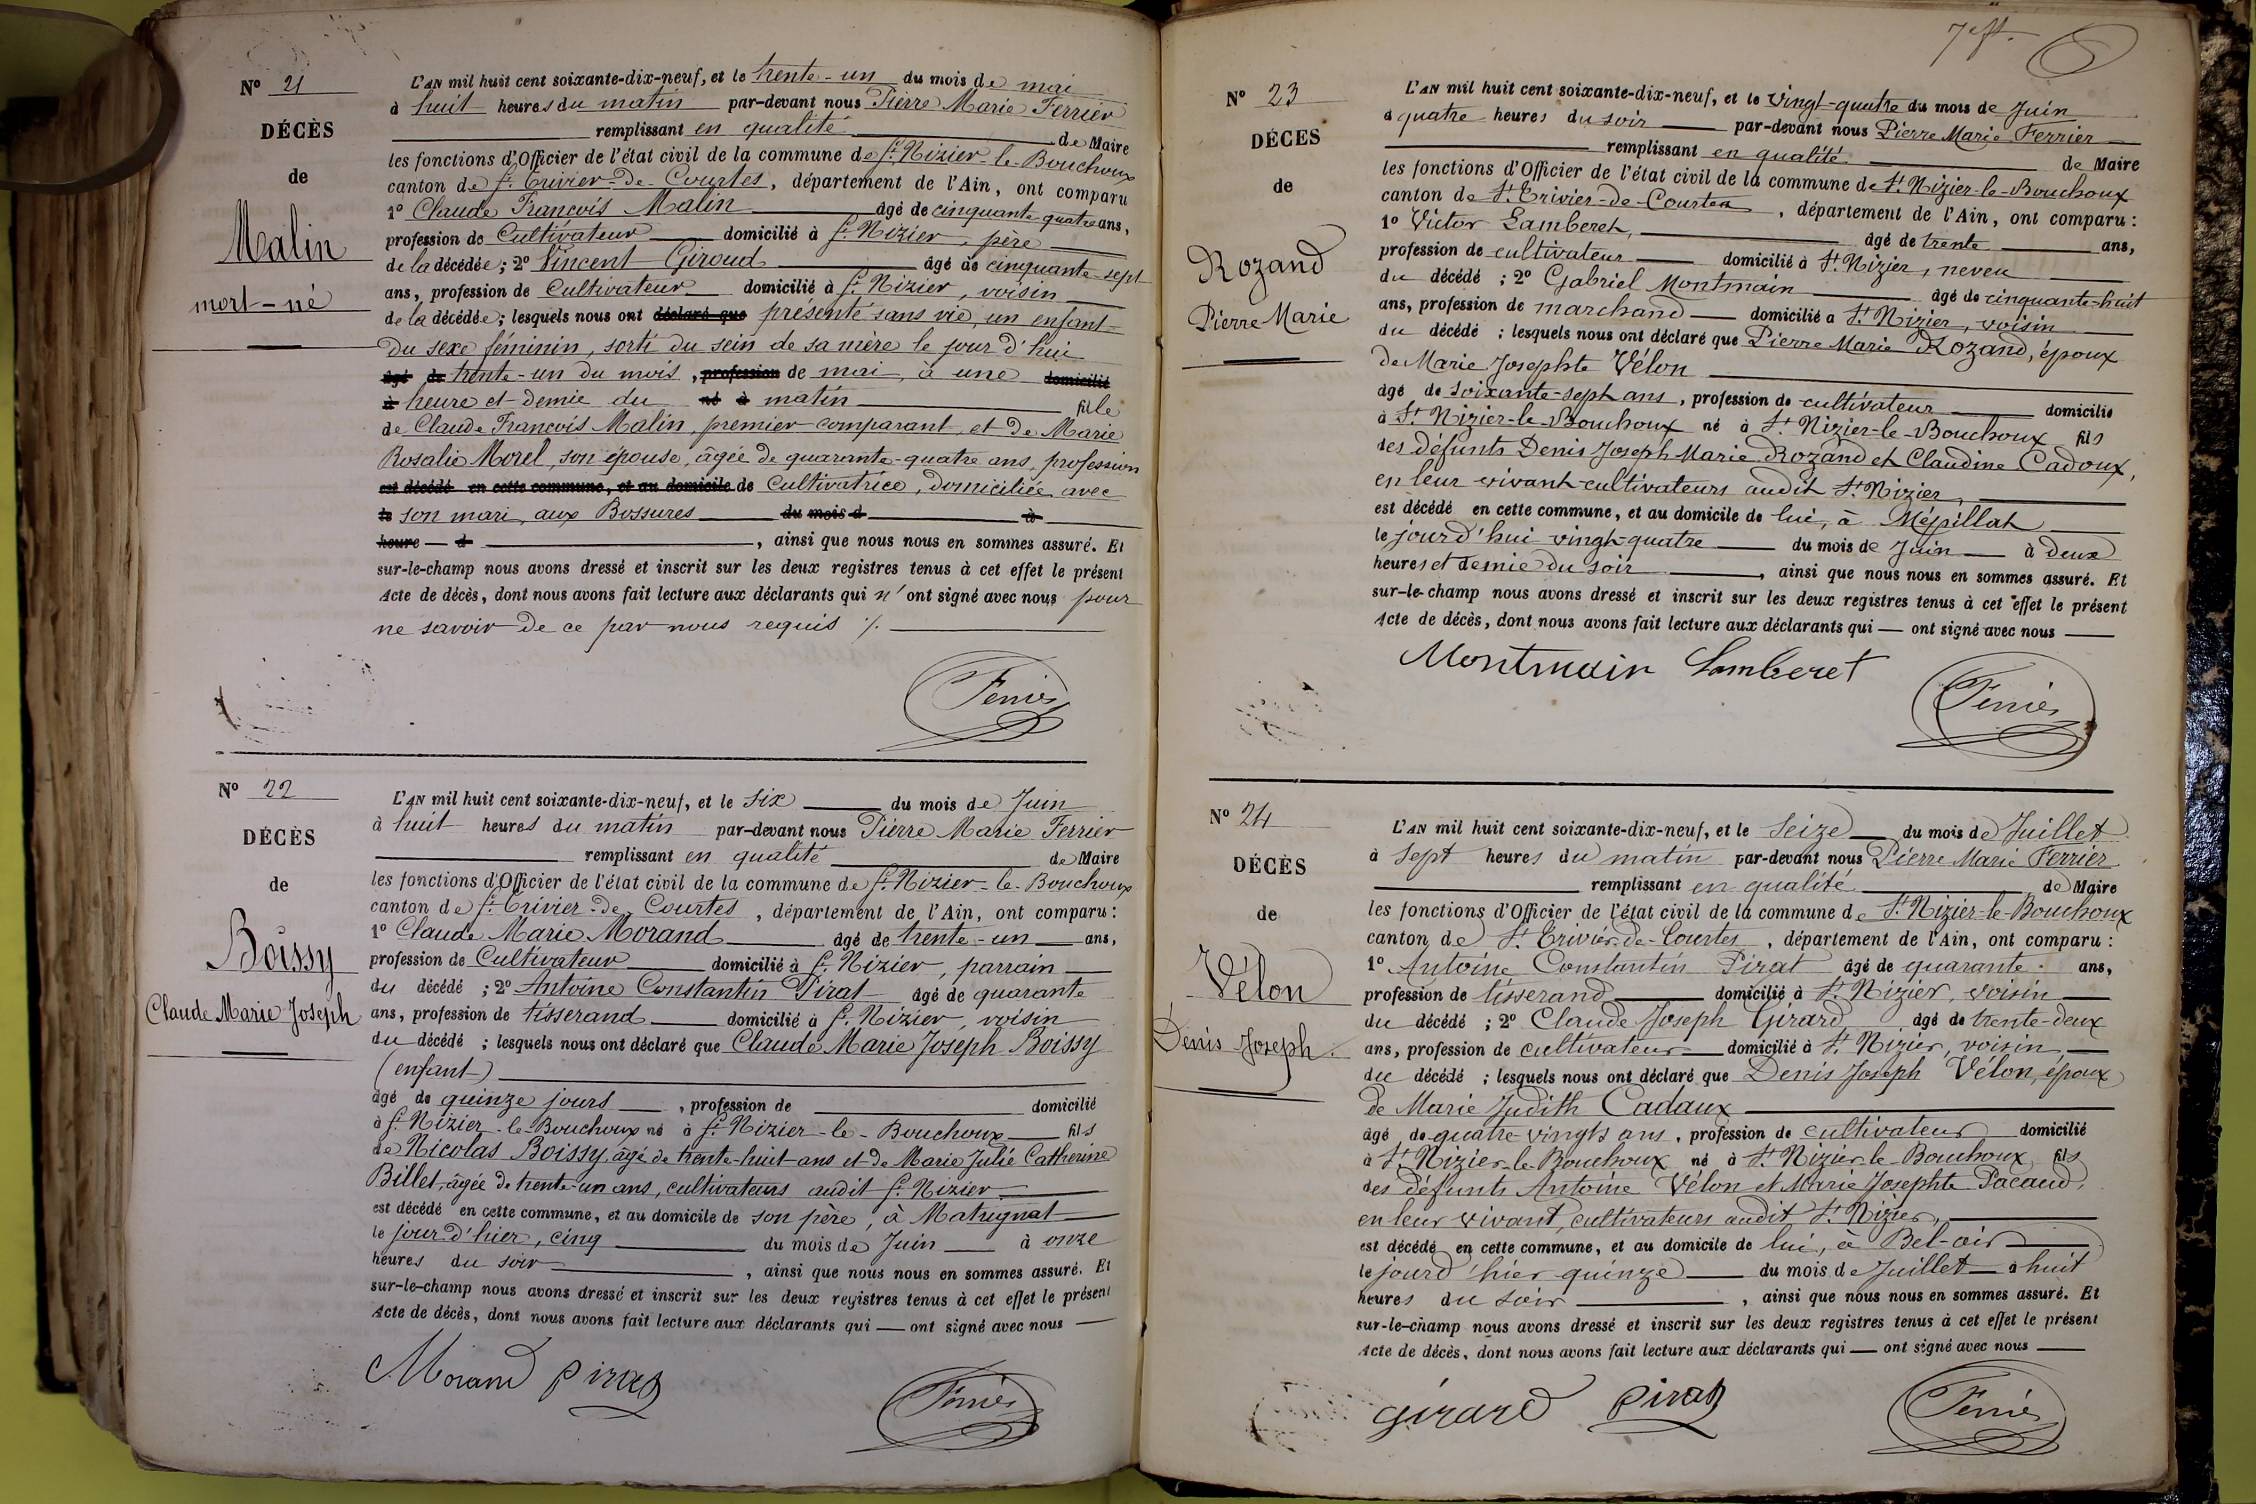 Nº 21
DÉCÈS
de
Malin
mort-né
L'AN mil huit cent soixante-dix-neuf, et le trente-un du mois de mai
à huit heures du matin par-devant nous Pierre Marie Ferrier
remplissant en qualité de Maire
les fonctions d'Officier de l'état civil de la commune de St. Nizier-le-Bouchoux
canton de St. Trivier-de-Courtes, département de l'Ain, ont comparu
1º Claude François Malin âgé de cinquante quatre ans,
profession de Cultivateur domicilié à St. Nizier, père
de la décédée; 2º Vincent Giroud âgé de cinquante-sept
ans, profession de Cultivateur domicilié à St. Nizier, voisin
de la décédée; lesquels nous ont déclaré que présenté sans vie, un enfant
du sexe féminin, sorti du sein de sa mère le jour d'hui
âgé de trente-un du mois, profession de mai, à une domicilié
à heure et demie du né à matin fille
de Claude François Malin, premier comparant, et de Marie
Rosalie Morel, son épouse, âgée de quarante-quatre ans, profession
est décédé en cette commune, et au domicile de de Cultivatrice, domiciliée avec
le son mari, aux Bossures du mois d à
heure d , ainsi que nous nous en sommes assuré. Et
sur-le-champ nous avons dressé et inscrit sur les deux registres tenus à cet effet le présent
Acte de décès, dont nous avons fait lecture aux déclarants qui n'ont signé avec nous pour
ne savoir de ce par nous requis ./.
Ferrier
Nº 22
DÉCÈS
de
Boissy
Claude Marie Joseph
L'AN mil huit cent soixante-dix-neuf, et le six du mois de Juin
à huit heures du matin par-devant nous Pierre Marie Ferrier
remplissant en qualité de Maire
les fonctions d'Officier de l'état civil de la commune de St. Nizier-le-Bouchoux
canton de St. Trivier-de-Courtes, département de l'Ain, ont comparu:
1º Claude Marie Morand âgé de trente-un ans,
profession de Cultivateur domicilié à St. Nizier, parrain
du décédé; 2º Antoine Constantin Pirat âgé de quarante
ans, profession de tisserand domicilié à St. Nizier, voisin
du décédé; lesquels nous ont déclaré que Claude Marie Joseph Boissy
(enfant)
âgé de quinze jours, profession de domicilié
à St. Nizier-le-Bouchoux né à St. Nizier-le-Bouchoux fils
de Nicolas Boissy, âgé de trente-huit ans et de Marie Julie Catherine
Billet, âgée de trente-un ans, cultivateurs audit St. Nizier
est décédé en cette commune, et au domicile de son père, à Matrignat
le jour d'hier, cinq du mois de Juin à onze
heures du soir, ainsi que nous nous en sommes assuré. Et
sur-le-champ nous avons dressé et inscrit sur les deux registres tenus à cet effet le présent
Acte de décès, dont nous avons fait lecture aux déclarants qui ont signé avec nous
Morand Pirat
Ferrier
7e ft.
Nº 23
DÉCES
de
Rozand
Pierre Marie
L'AN mil huit cent soixante-dix-neuf, et le vingt-quatre du mois de Juin
à quatre heures du soir par-devant nous Pierre Marie Ferrier
remplissant en qualité de Maire
les fonctions d'Officier de l'état civil de la commune de St. Nizier-le-Bouchoux
canton de St. Trivier-de-Courtes, département de l'Ain, ont comparu:
1º Victor Lamberet, âgé de trente ans,
profession de cultivateur domicilié à St. Nizier, neveu
du décédé; 2º Gabriel Montmain âgé de cinquante-huit
ans, profession de marchand domicilié à St. Nizier, voisin
du décédé; lesquels nous ont déclaré que Pierre Marie Rozand, époux
de Marie Josephte Vélon
âgé de soixante-sept ans, profession de cultivateur domicilié
à St. Nizier-le-Bouchoux né à St. Nizier-le-Bouchoux fils
des défunts Denis Joseph Marie Rozand et Claudine Cadoux,
en leur vivant cultivateurs audit St. Nizier,
est décédé en cette commune, et au domicile de lui, à Mépillat
le jour d'hui vingt-quatre du mois de Juin à deux
heures et demie du soir, ainsi que nous nous en sommes assuré. Et
sur-le-champ nous avons dressé et inscrit sur les deux registres tenus à cet effet le présent
Acte de décès, dont nous avons fait lecture aux déclarants qui ont signé avec nous
Montmain Lamberet
Ferrier
Nº 24
DÉCÈS
de
Vélon
Denis Joseph.
L'AN mil huit cent soixante-dix-neuf, et le seize du mois de Juillet
à sept heures du matin par-devant nous Pierre Marie Ferrier
remplissant en qualité de Maire
les fonctions d'Officier de l'état civil de la commune de St. Nizier-le-Bouchoux
canton de St. Trivier-de-Courtes, département de l'Ain, ont comparu:
1º Antoine Constantin Pirat âgé de quarante ans,
profession de tisserand domicilié à St. Nizier, voisin
du décédé; 2º Claude Joseph Girard âgé de trente-deux
ans, profession de cultivateur domicilié à St. Nizier, voisin
du décédé; lesquels nous ont déclaré que Denis Joseph Vélon, époux
de Marie Judith Cadaux
âgé de quatre-vingts ans, profession de cultivateur domicilié
à St. Nizier-le-Bouchoux né à St. Nizier-le-Bouchoux fils
des défunts Antoine Vélon et Marie Josephte Pacaud,
en leur vivant, cultivateurs audit St. Nizier,
est décédé en cette commune, et au domicile de lui, à Bel-air
le jour d'hier quinze du mois de Juillet à huit
heures du soir, ainsi que nous nous en sommes assuré. Et
sur-le-champ nous avons dressé et inscrit sur les deux registres tenus à cet effet le présent
Acte de décès, dont nous avons fait lecture aux déclarants qui ont signé avec nous
Girard Pirat
Ferrier